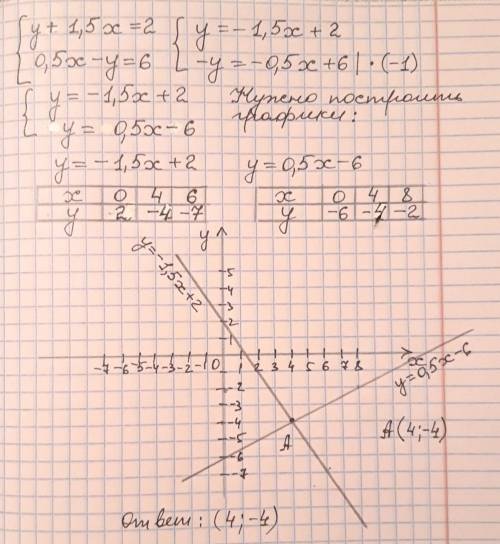 y + 1,5x = 2 y = -1,5x + 2
0,5x - y = 6 -y = -0,5x + 6 | · (-1)
y = -1,5x + 2 Нужно построить
y = 0,5x - 6 графики:
y = -1,5x + 2 y = 0,5x - 6
x 0 4 6 x 0 4 8
y 2 -4 -7 y -6 -4 -2
y
y = -1,5x + 2
5
4
3
2
1
-7 -6 -5 -4 -3 -2 -1 0 1 2 3 4 5 6 7 8 x
y = 0,5x - 6
-2
-3
-4
-5
-6
-7
A
A (4; -4)
Ответ: (4; -4)